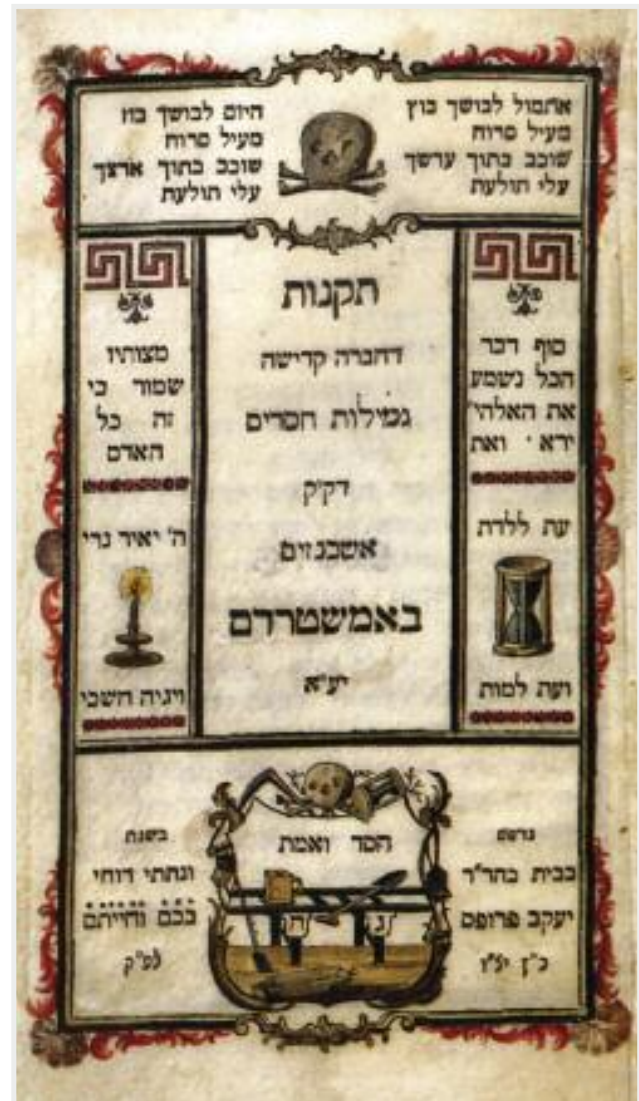 אתמול לבושך בוץ
מעיל סרוח
שוכב בתוך ערשך
עלי תולעת
היום לבושך בוז
מעיל סרוח
שוכב בתוך ארצך
עלי תולעת
סוף דבר
הכל נשמע
את האלהי'
ירא י ואת
מצותיו
שמור כי
זה כל
האדם
עת ללדת
ועת למות
תקנות
דחברה קדישה
גמילות חסדים
דק״ק
אשכנזים
באמשטרדם
יע״א
ה' יאיר נרי
ויגיה חשכי
נדפס
בבית כהר״ר
יעקב פרופס
כ״ץ יצ״ו
חסד ואמת
בשנת
ונתתי רוחי
בכם וחייתם
לפ״ק